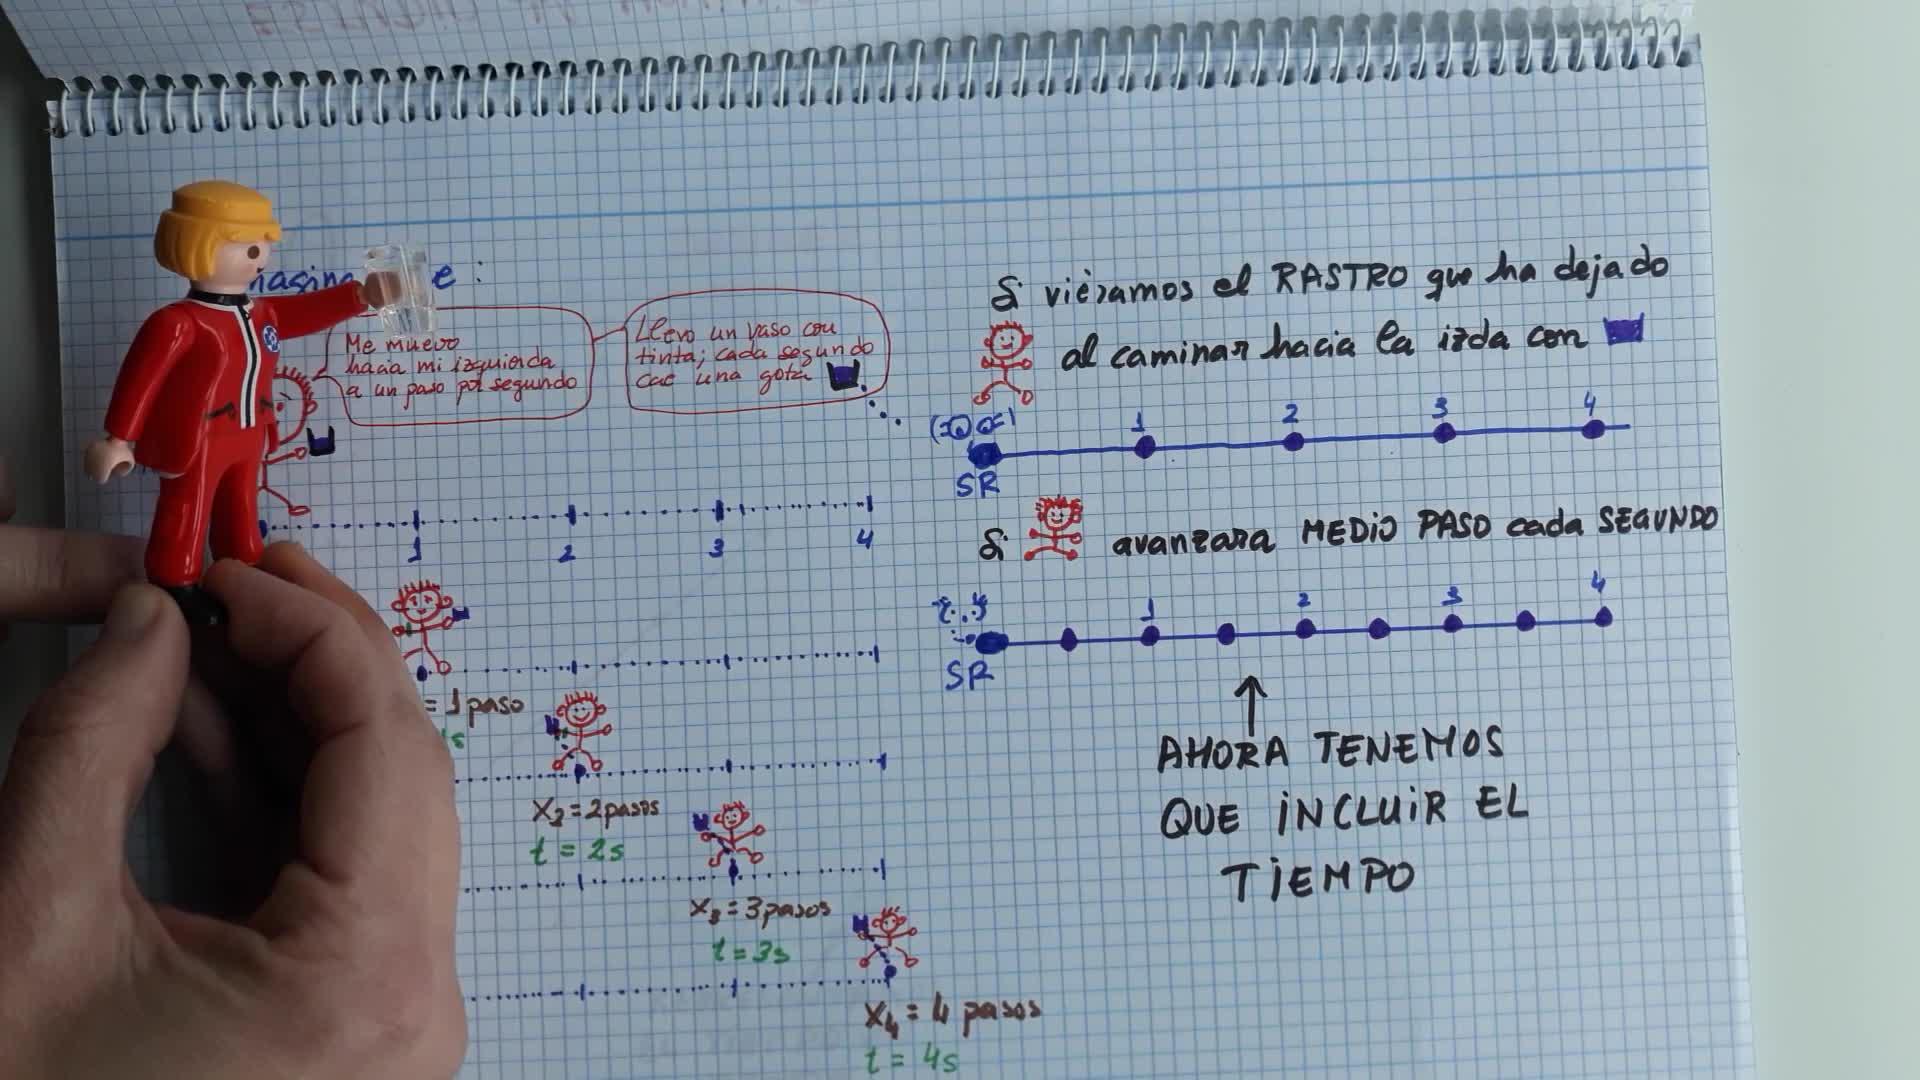 Me muevo
hacia mi izquierda
a un paso por segundo
Llevo un vaso con
tinta; cada segundo
cae una gota
1 2 3 4
= 1 paso
X₂ = 2 pasos
t = 2s
X₃ = 3 pasos
t = 3s
X₄ = 4 pasos
t = 4s
Si viéramos el RASTRO que ha dejado
al caminar hacia la izda con
1 2 3 4
SR
Si avanzara MEDIO PASO cada SEGUNDO
1 2 3 4
SR
AHORA TENEMOS
QUE INCLUIR EL
TIEMPO